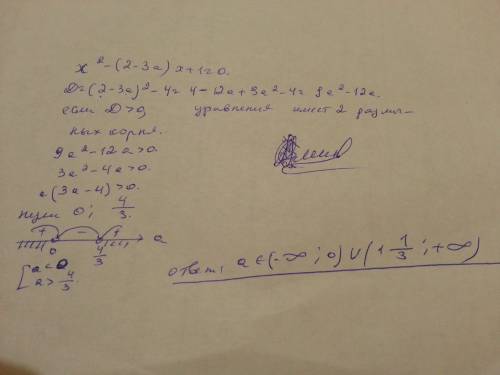 x² - (2-3a)x + 1 = 0.
D = (2-3a)² - 4 = 4 - 12a + 9a² - 4 = 9a² - 12a.
если D > 0, уравнения имеет 2 различ-
ных корня.
9a² - 12a > 0.
3a² - 4a > 0.
a(3a-4) > 0.
нули 0; 4/3.
+ - + a
0 4/3
[ a < 0
a > 4/3.
ответ: a ∈ (-∞; 0) ∪ (1 1/3; +∞)